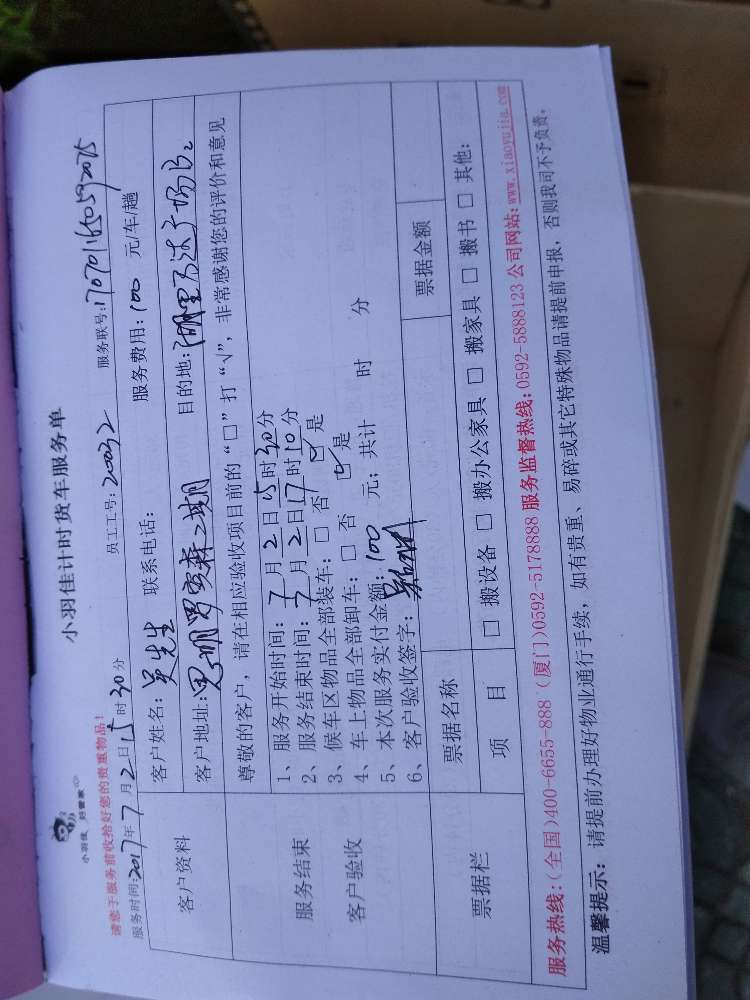 小羽佳 好管家
小羽佳计时货车服务单
请您于服务前收拾好您的贵重物品!
服务时间:2017年7月2日15时30分 员工工号:20032 服务联号:170701650592075
客户资料
客户姓名:吴先生 联系电话: 服务费用:100 元/车/趟
客户地址:思明罗宾森二期 目的地:湖里万达广场B2
尊敬的客户,请在相应验收项目前的“□”打“√”,非常感谢您的评价和意见
服务结束
客户验收
1、服务开始时间:7月2日15时30分
2、服务结束时间:7月2日17时10分
3、候车区物品全部装车:□ 否 ☑ 是
4、车上物品全部卸车:□ 否 ☑ 是
5、本次服务实付金额:100 元;共计 时 分
6、客户验收签字:
票据栏
票据名称 票据金额
项 目 □ 搬设备 □ 搬办公家具 □ 搬家具 □ 搬书 □ 其他:
服务热线:(全国)400-6655-888 (厦门)0592-5178888 服务监督热线:0592-5888123 公司网站:www.xiaoyujia.com
温馨提示: 请提前办理好物业通行手续,如有贵重、易碎或其它特殊物品请提前申报,否则我司不予负责。